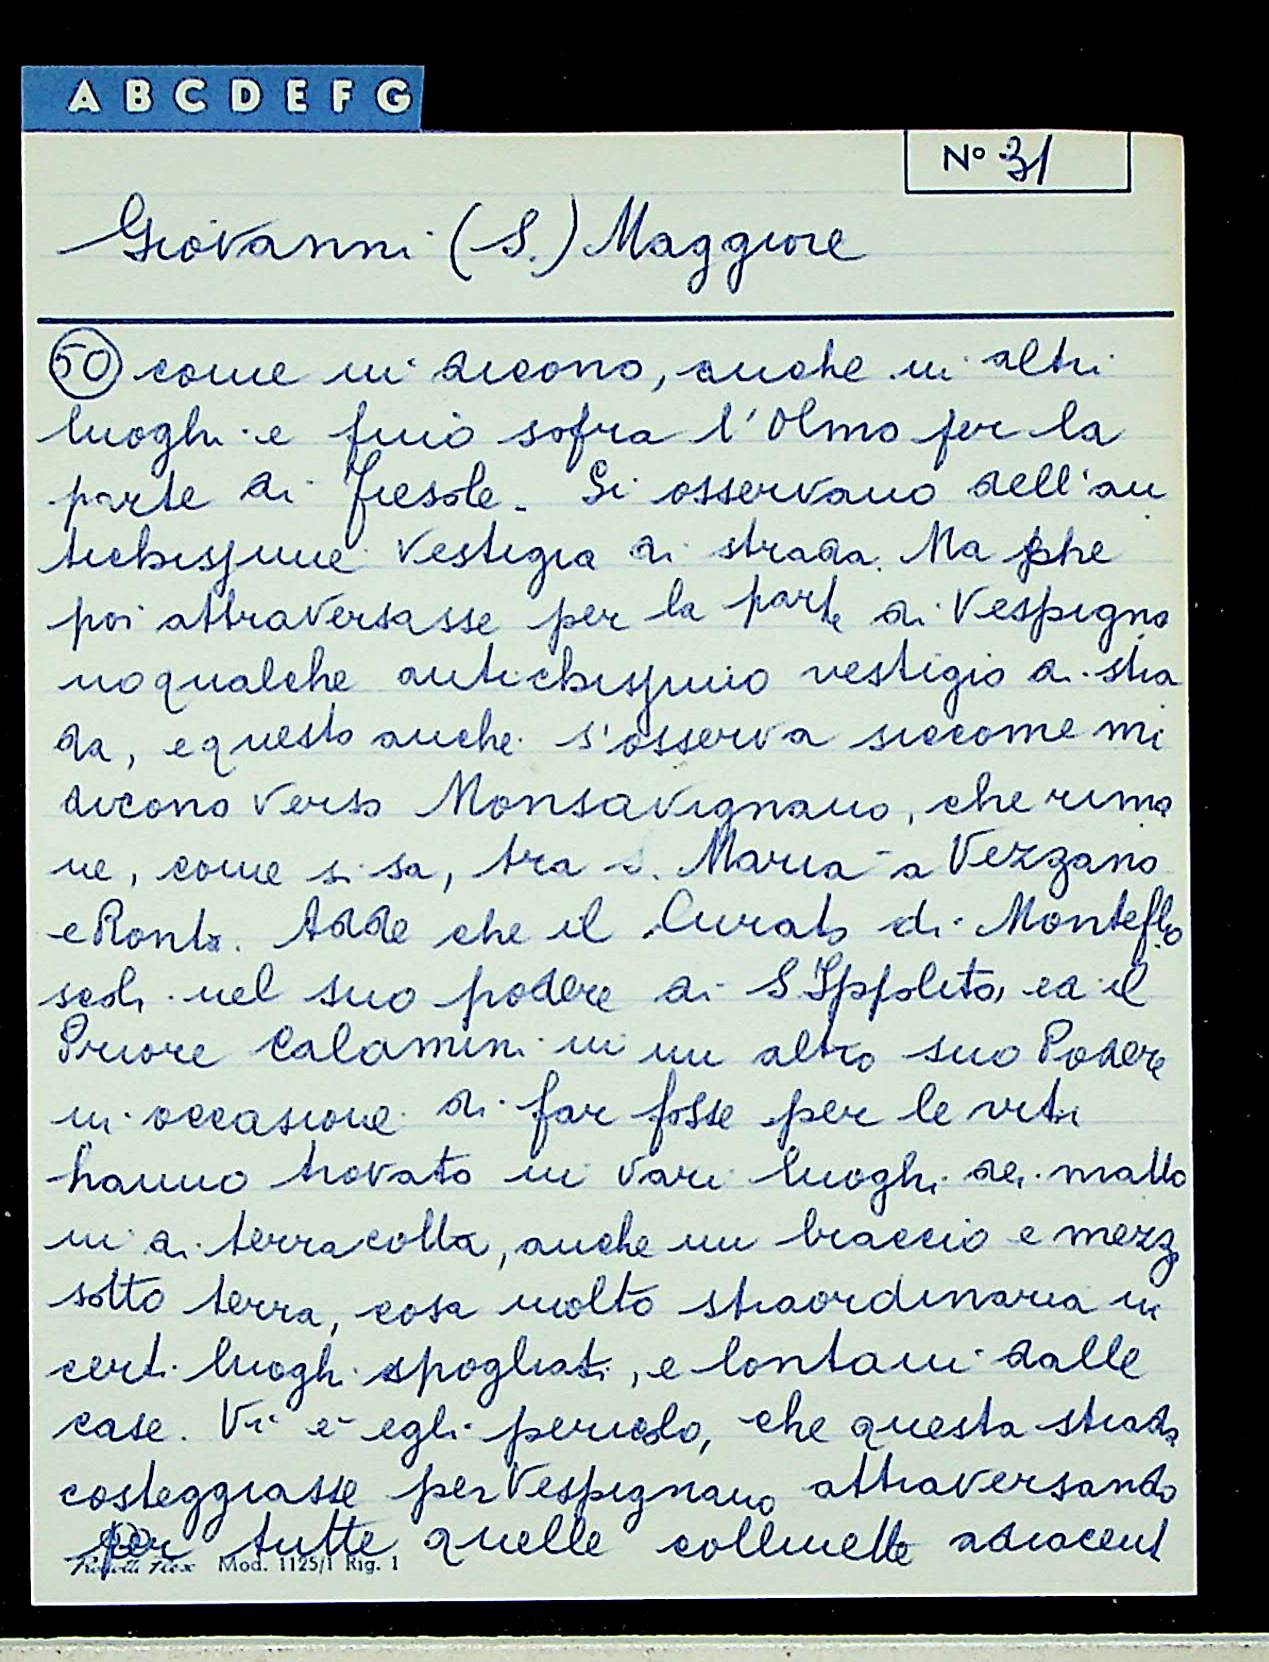 A B C D E F G
N° 31
Giovanni (S.) Maggiore
(50) come mi dicono, anche in altri
luoghi e fino sopra l'Olmo per la
parte di Fiesole. Si osservano dell'an
tichissime vestigia di strada. Ma che
poi attraversasse per la parte di Vespigna
no qualche antichissimo vestigio di stra
da, e questo anche s'osserva siccome mi
dicono verso Monsavignano, che rima
ne, come si sa, tra S. Maria a Vezzano
e Ronta. Adde che il Curato di Monteflo
scoli nel suo podere di S Ippolito, ed il
Priore Calamini in un altro suo Podere
in occasione di far fosse per le viti
hanno trovato in vari luoghi dei matto
ni di terra cotta, anche un braccio e mezz
sotto terra, cosa molto straordinaria in
certi luoghi spogliati, e lontani dalle
case. Vi è egli pericolo, che questa strada
costeggiasse per Vespignano attraversando
per tutte quelle collinette adiacent
Mod. 1125/1 Rig. 1